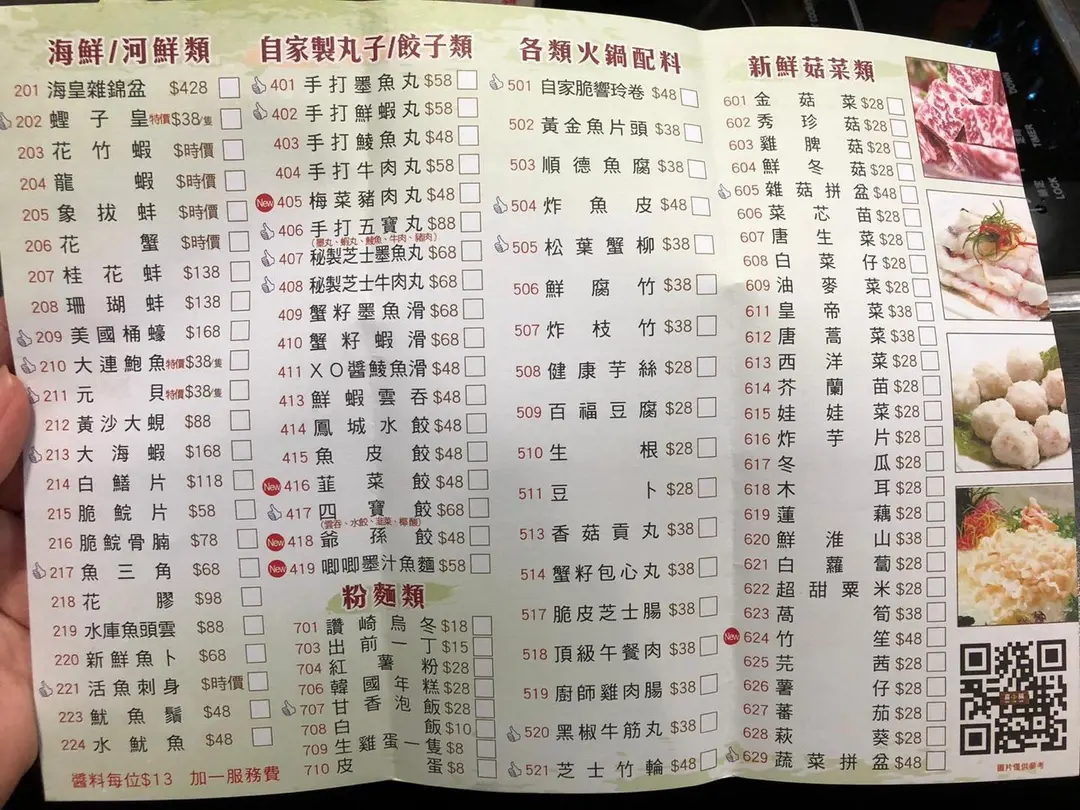 海鮮/河鮮類
201 海皇雜錦盆 $428
202 蟶子皇 特價$38/隻
203 花竹蝦 $時價
204 龍蝦 $時價
205 象拔蚌 $時價
206 花蟹 $時價
207 桂花蚌 $138
208 珊瑚蚌 $138
209 美國桶蠔 $168
210 大連鮑魚 特價$38/隻
211 元貝 特價$38/隻
212 黃沙大蜆 $88
213 大海蝦 $168
214 白鱔片 $118
215 脆鯇片 $58
216 脆鯇骨腩 $78
217 魚三角 $68
218 花膠 $98
219 水庫魚頭雲 $88
220 新鮮魚卜 $68
221 活魚刺身 $時價
223 魷魚鬚 $48
224 水魷魚 $48
醬料每位$13 加一服務費
自家製丸子/餃子類
401 手打墨魚丸 $58
402 手打鮮蝦丸 $58
403 手打鯪魚丸 $58
404 手打牛肉丸 $58
New 405 梅菜豬肉丸 $48
406 手打五寶丸 $88
(墨丸、蝦丸、鯪魚、牛肉、豬肉)
407 秘製芝士墨魚丸 $68
408 秘製芝士牛肉丸 $68
409 蟹籽墨魚滑 $68
410 蟹籽蝦滑 $68
411 XO醬鯪魚滑 $48
413 鮮蝦雲吞 $48
414 鳳城水餃 $48
415 魚皮餃 $48
New 416 韮菜餃 $48
417 四寶餃 $68
(雲吞、水餃、韮菜、椰酸)
New 418 爺孫餃 $48
New 419 唧唧墨汁魚麵 $58
粉麵類
701 讚崎烏冬 $18
703 出前一丁 $15
704 紅薯粉 $28
706 韓國年糕 $28
707 甘香泡飯 $28
708 白飯 $10
709 生雞蛋一隻 $8
710 皮蛋 $8
各類火鍋配料
501 自家脆響玲卷 $48
502 黃金魚片頭 $38
503 順德魚腐 $38
504 炸魚皮 $48
505 松葉蟹柳 $38
506 鮮腐竹 $38
507 炸枝竹 $38
508 健康芋絲 $28
509 百福豆腐 $28
510 生根 $28
511 豆卜 $28
513 香菇貢丸 $38
514 蟹籽包心丸 $38
517 脆皮芝士腸 $38
518 頂級午餐肉 $38
519 廚師雞肉腸 $38
520 黑椒牛筋丸 $38
521 芝士竹輪 $48
新鮮菇菜類
601 金菇菜 $28
602 秀珍菇 $28
603 雞脾菇 $28
604 鮮冬菇 $28
605 雜菇拼盆 $48
606 菜芯苗 $28
607 唐生菜 $28
608 白菜仔 $28
609 油麥菜 $28
611 皇帝菜 $38
612 唐蒿菜 $38
613 西洋菜 $28
614 芥蘭苗 $28
615 娃娃菜 $28
616 炸芋片 $28
617 冬瓜 $28
618 木耳 $28
619 蓮藕 $28
620 鮮淮山 $38
621 白蘿蔔 $28
622 超甜粟米 $28
623 萵筍 $38
New 624 竹笙 $48
625 芫茜 $28
626 薯仔 $28
627 蕃茄 $28
628 萩葵 $28
629 蔬菜拼盆 $48
圖片僅供參考
LOCK